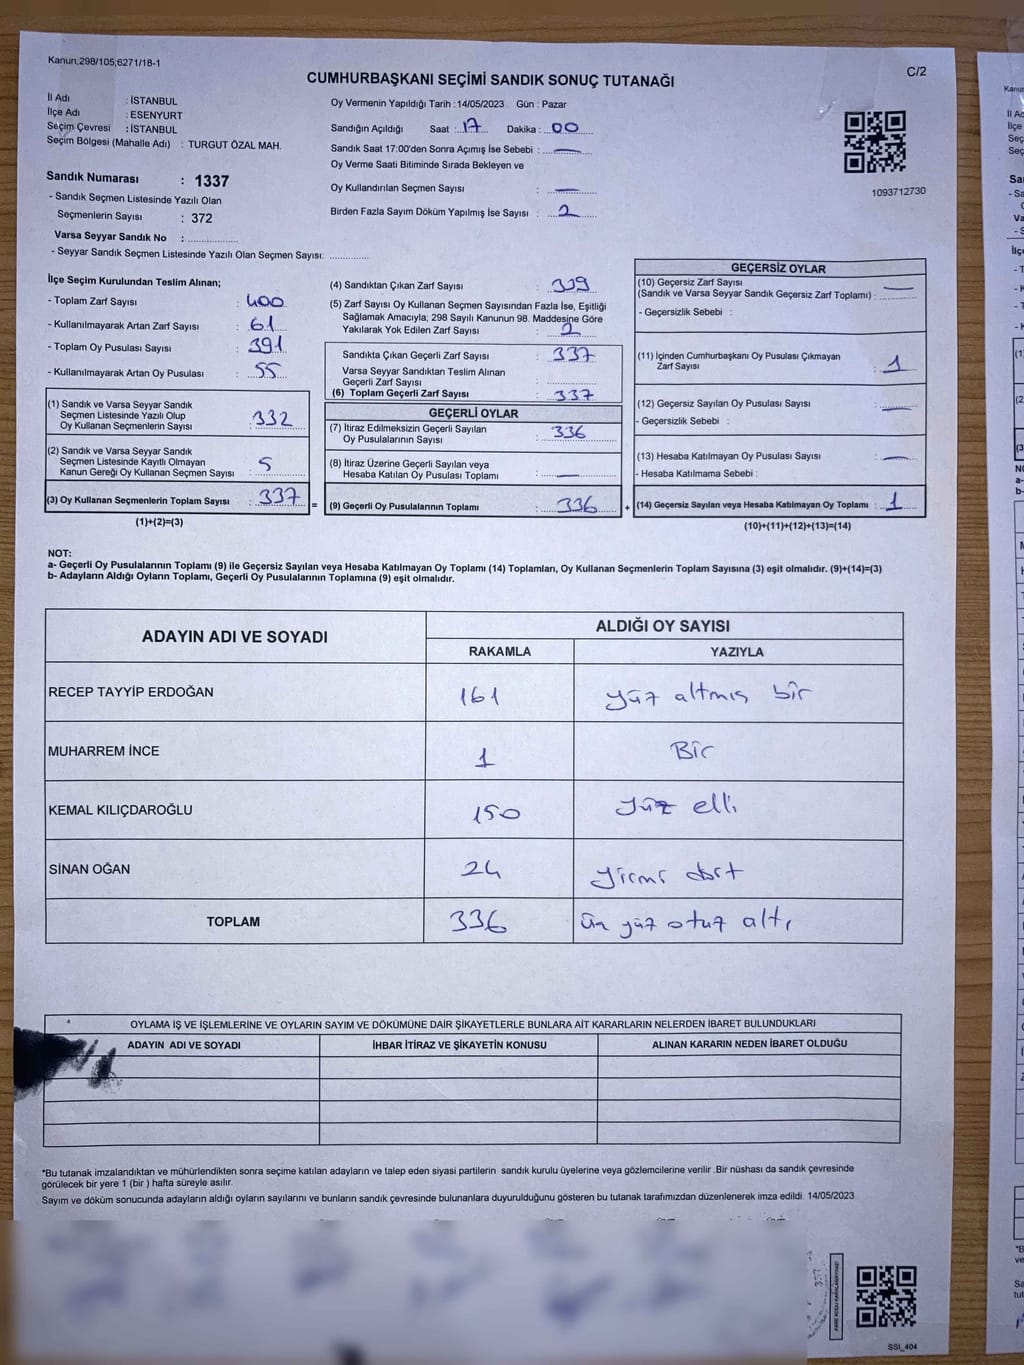 Kanun;298/105;6271/18-1
C/2
CUMHURBAŞKANI SEÇİMİ SANDIK SONUÇ TUTANAĞI
İl Adı : İSTANBUL
İlçe Adı : ESENYURT
Seçim Çevresi : İSTANBUL
Seçim Bölgesi (Mahalle Adı) : TURGUT ÖZAL MAH.
Sandık Numarası : 1337
- Sandık Seçmen Listesinde Yazılı Olan
Seçmenlerin Sayısı : 372
Varsa Seyyar Sandık No :
- Seyyar Sandık Seçmen Listesinde Yazılı Olan Seçmen Sayısı:
Oy Vermenin Yapıldığı Tarih : 14/05/2023 Gün : Pazar
Sandığın Açıldığı Saat : 17 Dakika : 00
Sandık Saat 17:00'den Sonra Açımış İse Sebebi : —
Oy Verme Saati Bitiminde Sırada Bekleyen ve
Oy Kullandırılan Seçmen Sayısı : —
Birden Fazla Sayım Döküm Yapılmış İse Sayısı : 2
1093712730
İlçe Seçim Kurulundan Teslim Alınan;
- Toplam Zarf Sayısı : 400
- Kullanılmayarak Artan Zarf Sayısı : 61
- Toplam Oy Pusulası Sayısı : 391
- Kullanılmayarak Artan Oy Pusulası : 55
(1) Sandık ve Varsa Seyyar Sandık
Seçmen Listesinde Yazılı Olup
Oy Kullanan Seçmenlerin Sayısı : 332
(2) Sandık ve Varsa Seyyar Sandık
Seçmen Listesinde Kayıtlı Olmayan
Kanun Gereği Oy Kullanan Seçmen Sayısı : 5
(3) Oy Kullanan Seçmenlerin Toplam Sayısı : 337 =
(1)+(2)=(3)
(4) Sandıktan Çıkan Zarf Sayısı : 339
(5) Zarf Sayısı Oy Kullanan Seçmen Sayısından Fazla İse, Eşitliği
Sağlamak Amacıyla; 298 Sayılı Kanunun 98. Maddesine Göre
Yakılarak Yok Edilen Zarf Sayısı : 2
Sandıkta Çıkan Geçerli Zarf Sayısı : 337
Varsa Seyyar Sandıktan Teslim Alınan
Geçerli Zarf Sayısı :
(6) Toplam Geçerli Zarf Sayısı : 337
GEÇERLİ OYLAR
(7) İtiraz Edilmeksizin Geçerli Sayılan
Oy Pusulalarının Sayısı : 336
(8) İtiraz Üzerine Geçerli Sayılan veya
Hesaba Katılan Oy Pusulası Toplamı : —
(9) Geçerli Oy Pusulalarının Toplamı : 336 +
GEÇERSİZ OYLAR
(10) Geçersiz Zarf Sayısı
(Sandık ve Varsa Seyyar Sandık Geçersiz Zarf Toplamı) : —
- Geçersizlik Sebebi :
(11) İçinden Cumhurbaşkanı Oy Pusulası Çıkmayan
Zarf Sayısı : 1
(12) Geçersiz Sayılan Oy Pusulası Sayısı : —
- Geçersizlik Sebebi :
(13) Hesaba Katılmayan Oy Pusulası Sayısı : —
- Hesaba Katılmama Sebebi :
(14) Geçersiz Sayılan veya Hesaba Katılmayan Oy Toplamı : 1
(10)+(11)+(12)+(13)=(14)
NOT:
a- Geçerli Oy Pusulalarının Toplamı (9) ile Geçersiz Sayılan veya Hesaba Katılmayan Oy Toplamı (14) Toplamları, Oy Kullanan Seçmenlerin Toplam Sayısına (3) eşit olmalıdır. (9)+(14)=(3)
b- Adayların Aldığı Oyların Toplamı, Geçerli Oy Pusulalarının Toplamına (9) eşit olmalıdır.
ADAYIN ADI VE SOYADI ALDIĞI OY SAYISI
RAKAMLA YAZIYLA
RECEP TAYYİP ERDOĞAN 161 yüz altmış bir
MUHARREM İNCE 1 Bir
KEMAL KILIÇDAROĞLU 150 yüz elli
SİNAN OĞAN 24 yirmi dört
TOPLAM 336 üç yüz otuz altı
OYLAMA İŞ VE İŞLEMLERİNE VE OYLARIN SAYIM VE DÖKÜMÜNE DAİR ŞİKAYETLERLE BUNLARA AİT KARARLARIN NELERDEN İBARET BULUNDUKLARI
ADAYIN ADI VE SOYADI İHBAR İTİRAZ VE ŞİKAYETİN KONUSU ALINAN KARARIN NEDEN İBARET OLDUĞU
*Bu tutanak imzalandıktan ve mühürlendikten sonra seçime katılan adayların ve talep eden siyasi partilerin sandık kurulu üyelerine veya gözlemcilerine verilir .Bir nüshası da sandık çevresinde
görülecek bir yere 1 (bir ) hafta süreyle asılır.
Sayım ve döküm sonucunda adayların aldığı oyların sayılarını ve bunların sandık çevresinde bulunanlara duyurulduğunu gösteren bu tutanak tarafımızdan düzenlenerek imza edildi. 14/05/2023
SSI_404